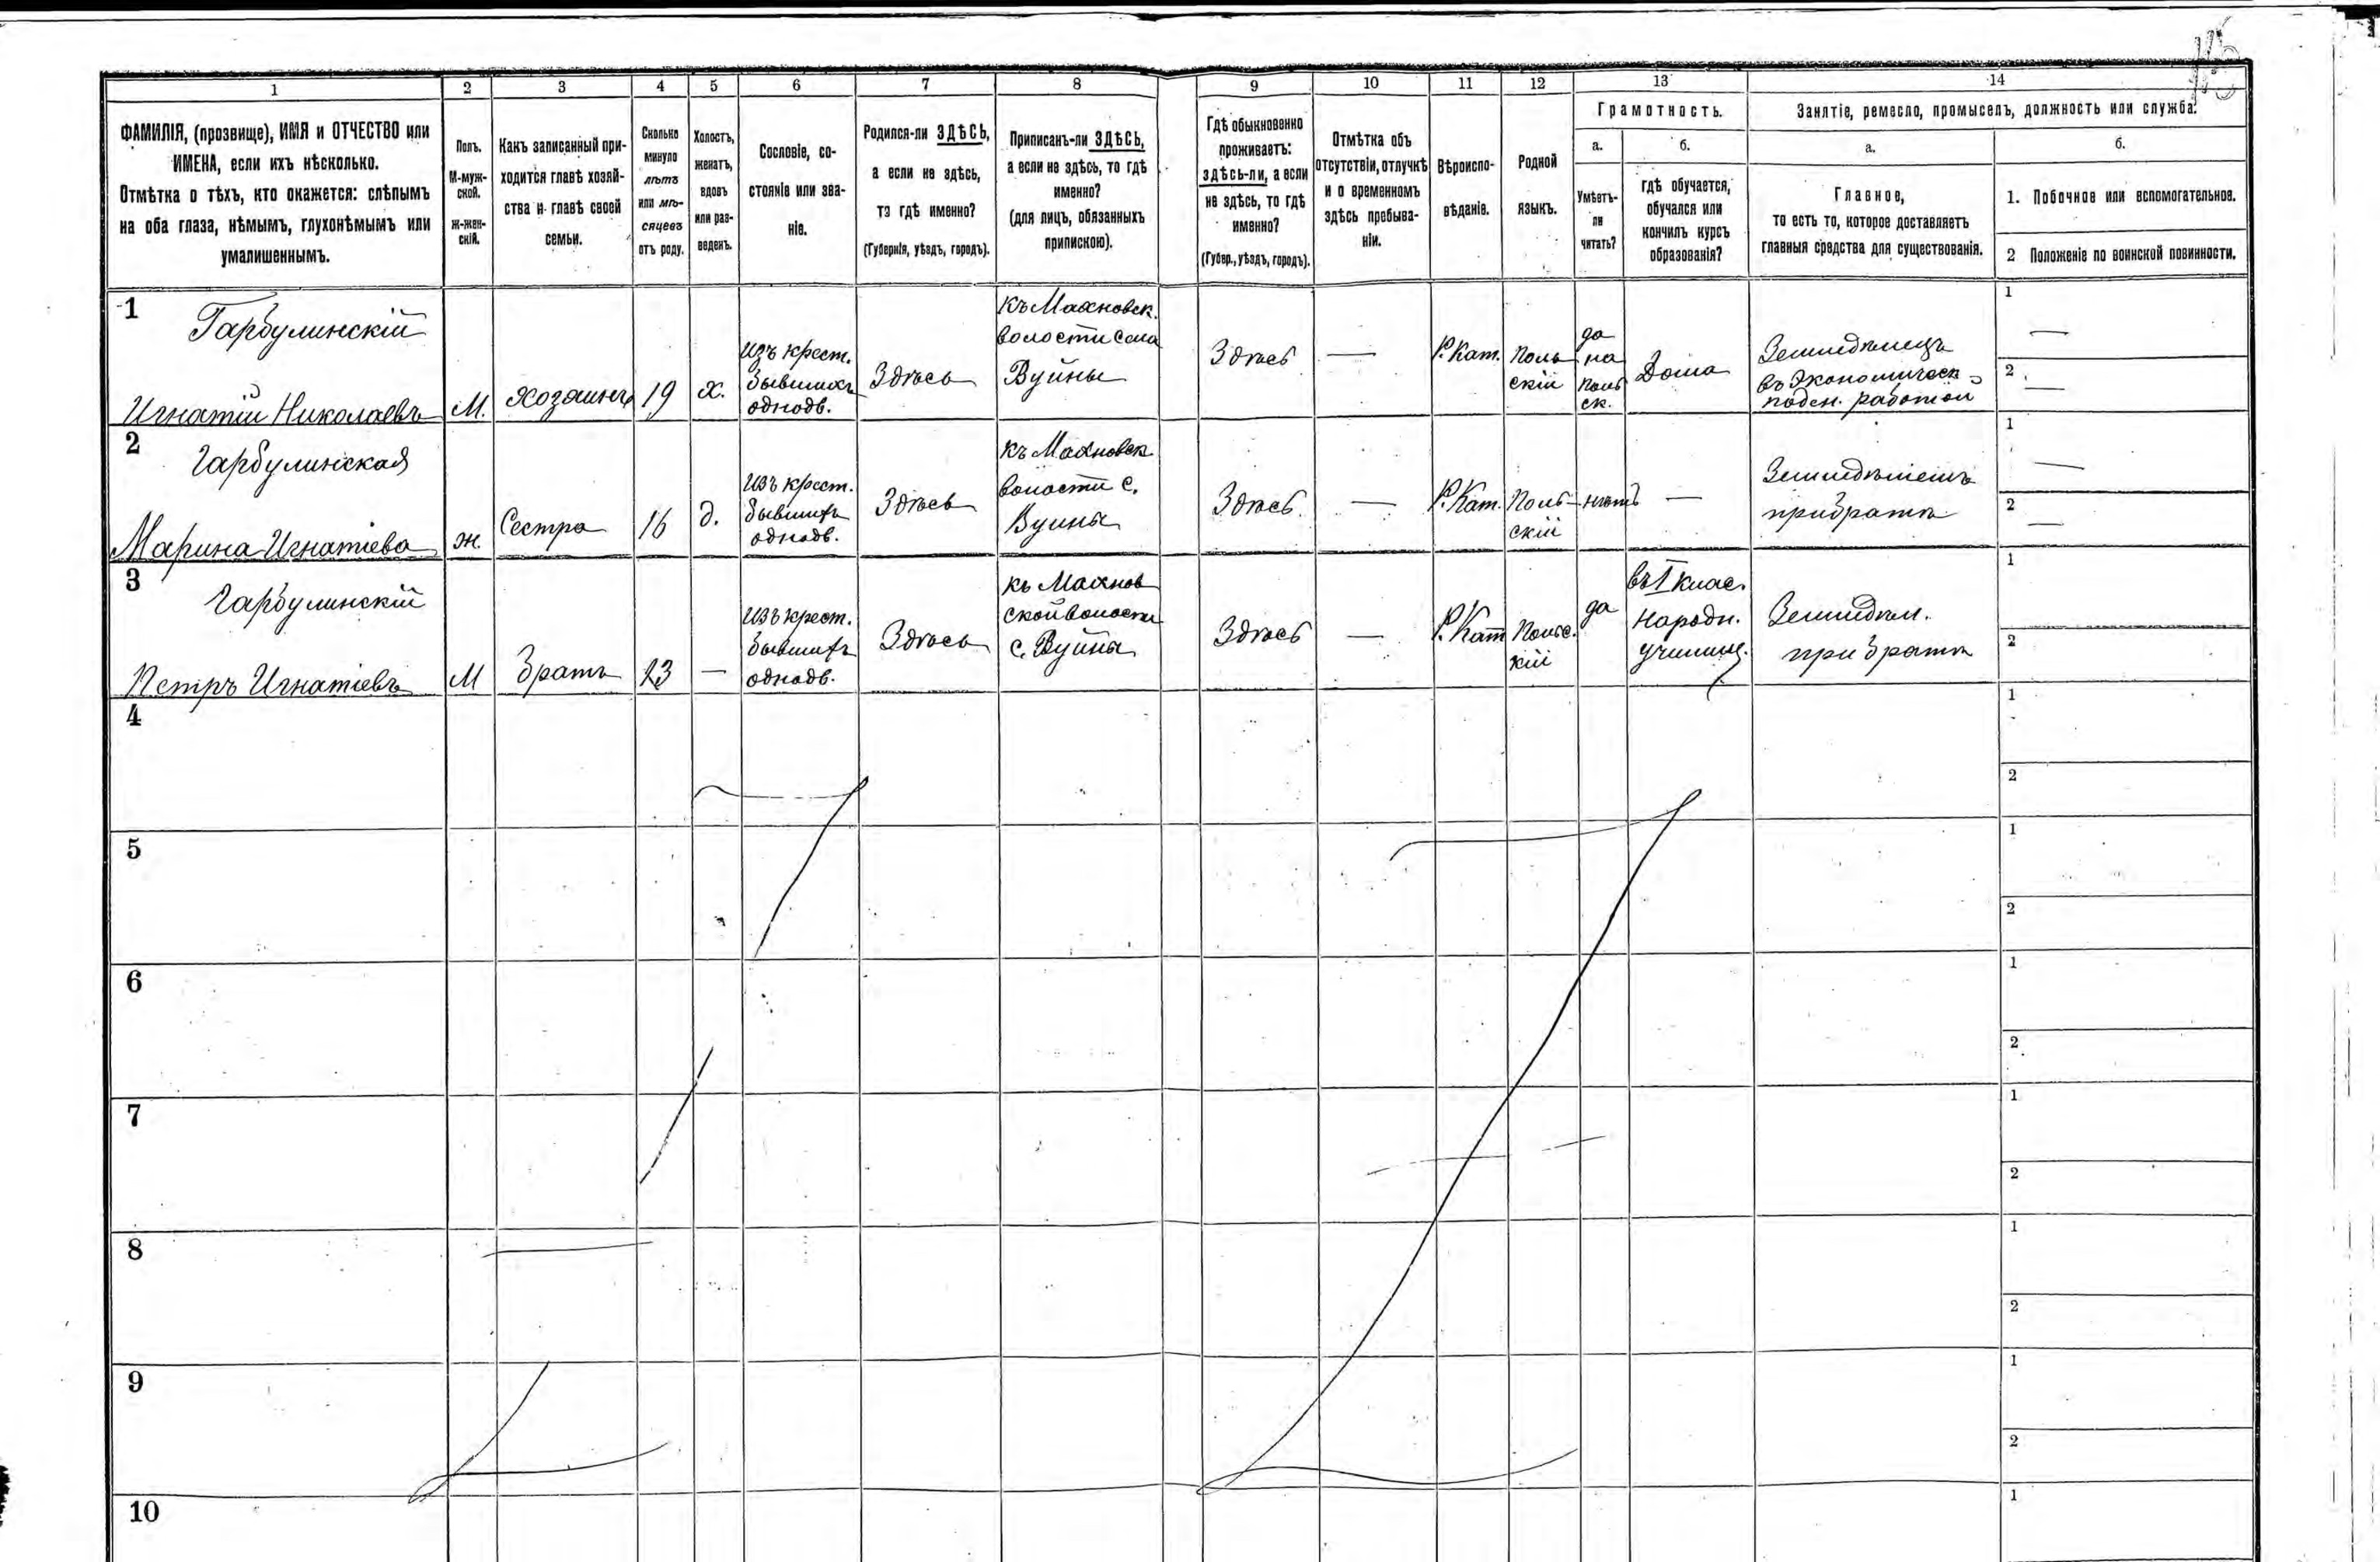 115
1 2 3 4 5 6 7 8 9 10 11 12 13 14
ФАМИЛІЯ, (прозвище), ИМЯ и ОТЧЕСТВО или
ИМЕНА, если ихъ нѣсколько.
Отмѣтка о тѣхъ, кто окажется: слѣпымъ
на оба глаза, нѣмымъ, глухонѣмымъ или
умалишеннымъ.
Полъ.
М-муж-
ской.
Ж-жен-
скій.
Какъ записанный при-
ходится главѣ хозяй-
ства и главѣ своей
семьи.
Сколько
минуло
лѣтъ
или мѣ-
сяцевъ
отъ роду.
Холостъ,
женатъ,
вдовъ
или раз-
веденъ.
Сословіе, со-
стояніе или зва-
ніе.
Родился-ли ЗДѢСЬ,
а если не здѣсь,
то гдѣ именно?
(Губернія, уѣздъ, городъ).
Приписанъ-ли ЗДѢСЬ,
а если не здѣсь, то гдѣ
именно?
(для лицъ, обязанныхъ
припискою).
Гдѣ обыкновенно
проживаетъ:
здѣсь-ли, а если
не здѣсь, то гдѣ
именно?
(Губер., уѣздъ, городъ).
Отмѣтка объ
отсутствіи, отлучкѣ
и о временномъ
здѣсь пребыва-
ніи.
Вѣроиспо-
вѣданіе.
Родной
языкъ.
Грамотность.
а.
Умѣетъ-
ли
читать?
б.
гдѣ обучается,
обучался или
кончилъ курсъ
образованія?
Занятіе, ремесло, промыселъ, должность или служба.
а.
Главное,
то есть то, которое доставляетъ
главныя средства для существованія.
б.
1. Побочное или вспомогательное.
2 Положеніе по воинской повинности.
1
Гарбулинскій
Игнатій Николаевъ
М.
Хозяинъ
19
х.
Изъ крест.
бывшихъ
однодв.
Здѣсь
Къ Махновск.
волости села
Вуйны
Здѣсь
—
Р. Кат.
Поль
скій
да
на
поль
ск.
Дома
Земледѣлецъ
въ Экономическ
поден. работой
1
—
2
—
2
Гарбулинская
Марина Игнатіева
ж.
Сестра
16
д.
Изъ крест.
бывшихъ
однодв.
Здѣсь
къ Махновск
волости с.
Вуйны
Здѣсь
—
Р. Кат.
Поль-
скій
нѣтъ
—
при братѣ
1
—
2
—
3
Гарбулинскій
Петръ Игнатіевъ
М
братъ
13
—
Изъ крест.
бывшихъ
однодв.
Здѣсь
къ Махнов
ской волости
с. Вуйны
Здѣсь
—
Р. Кат
Польс.
кій
да
въ I клас.
народн.
училищ.
Земледѣл.
при братѣ
1
2
4
1
2
5
1
2
6
1
2
7
1
2
8
1
2
9
1
2
10
1